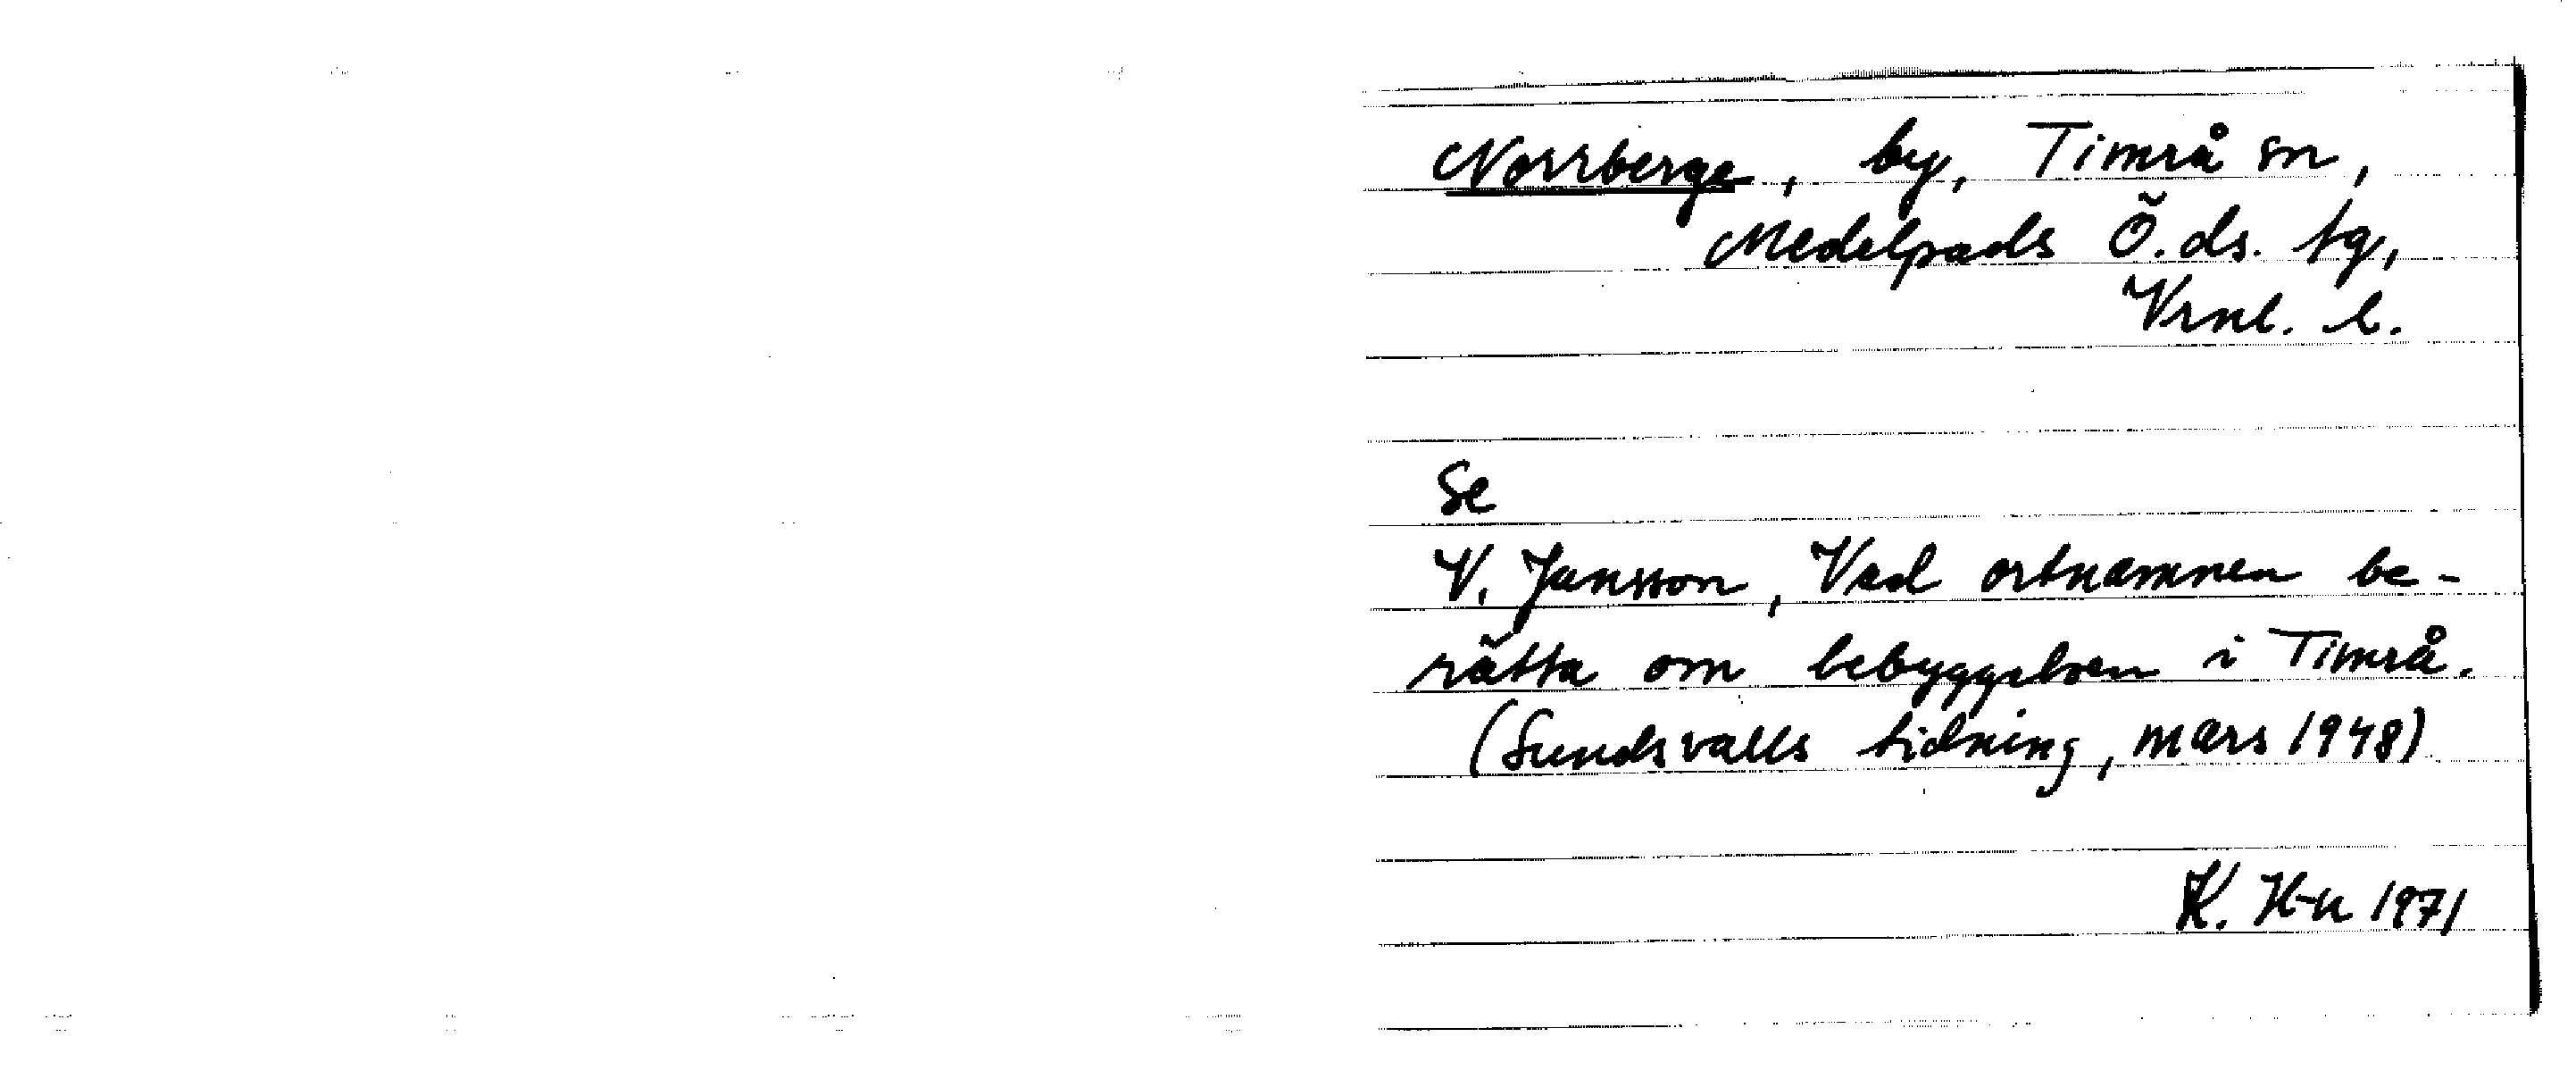 Norrberge, by, Timrå sn,
Medelpads Ö. ds. tg,
Vrnl. l.
Se
V. Jansson, Vad ortnamnen be-
rätta om bebyggelsen i Timrå.
(Sundsvalls tidning, mars 1948)
K. H-n 1971